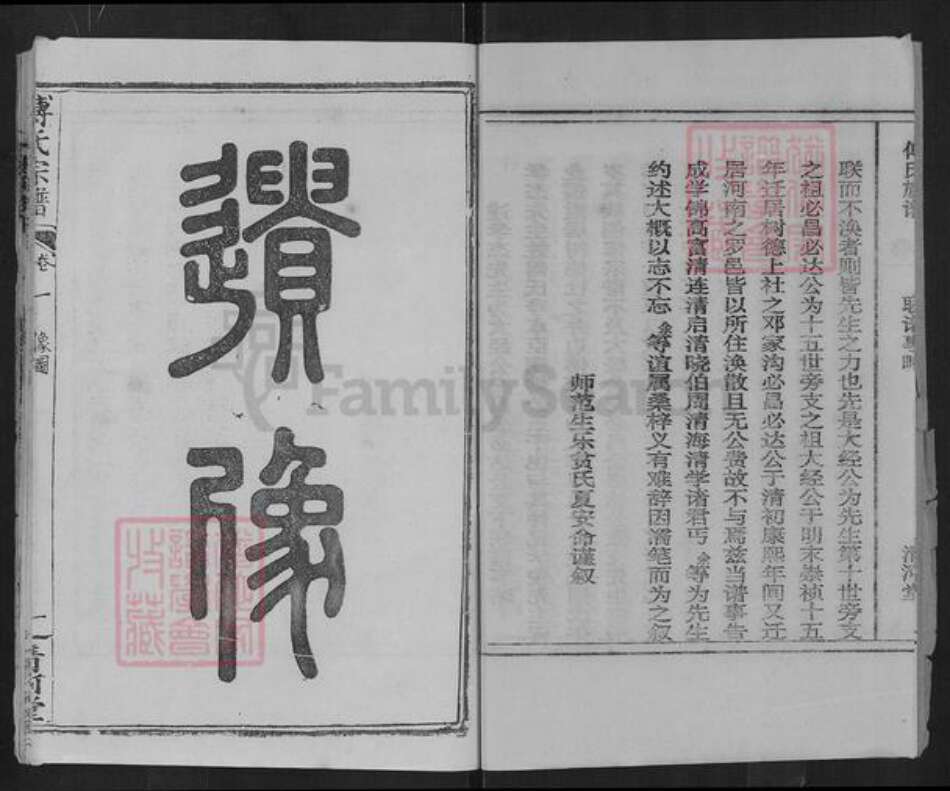 傅氏族谱
联谱事略
清河堂
联而不涣者则皆先生之力也先是大经公为先生第十世旁支
之祖必昌必达公为十五世旁支之祖大经公于明末崇祯十五
年迁居树德上社之邓家沟必昌必达公于清初康熙年间又迁
居河南之罗邑皆以所住涣散且无公费故不与焉兹当谱事告
成学锦高富清连清启清晓伯周清海清学诸君丐余等为先生
约述大概以志不忘余等谊属桑梓义有难辞因濡笔而为之叙
师范生乐贫氏夏安命谨叙
遺像
傅氏宗譜
卷一
像圖
清河堂
FamilySearch